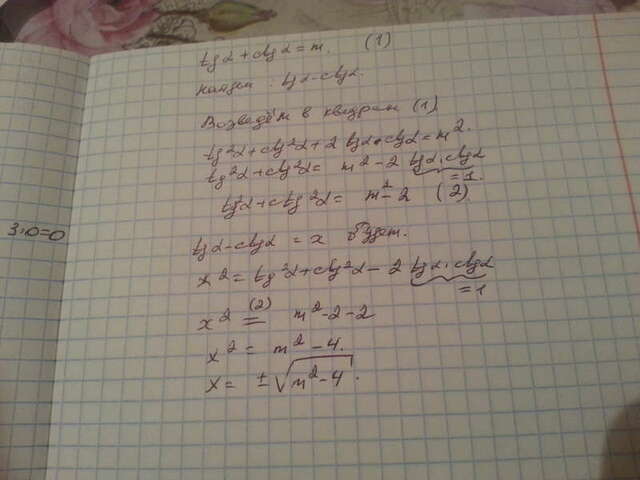 tg α + ctg α = m. (1)
найдем: tg α - ctg α.
Возведём в квадрат (1)
tg²α + ctg²α + 2 tg α · ctg α = m².
tg²α + ctg²α = m² - 2 tg α · ctg α
= 1.
tg²α + ctg²α = m² - 2 (2)
3·0=0
tg α - ctg α = x
x² = tg²α + ctg²α - 2 tg α · ctg α
= 1
x² (2)= m² - 2 - 2
x² = m² - 4.
x = ± √m² - 4.